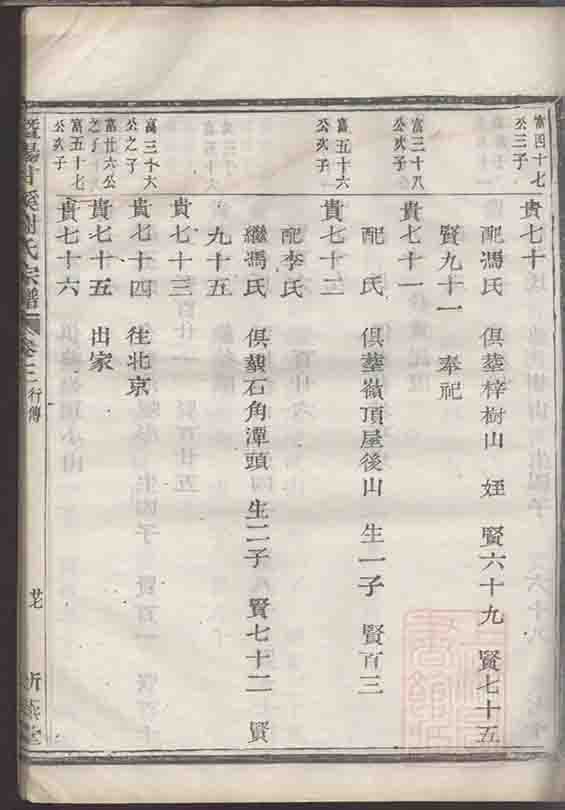 富四十七
公三子
貴七十
配馮氏 俱塟梓樹山 姪 賢六十九 賢七十五
賢九十一 奉祀
富三十八
公次子
貴七十一
配 氏 俱塟嶺頂屋後山 生一子 賢百三
富五十六
公次子
貴七十二
配李氏
繼馮氏 俱塟石角潭頭 生二子 賢七十二 賢
九十五
貴七十三
富三十六
公之子
貴七十四 往北京
富廿六公
之子
貴七十五 出家
富五十七
公次子
貴七十六
暨陽甘溪謝氏宗譜 卷之二 行傳 廿七